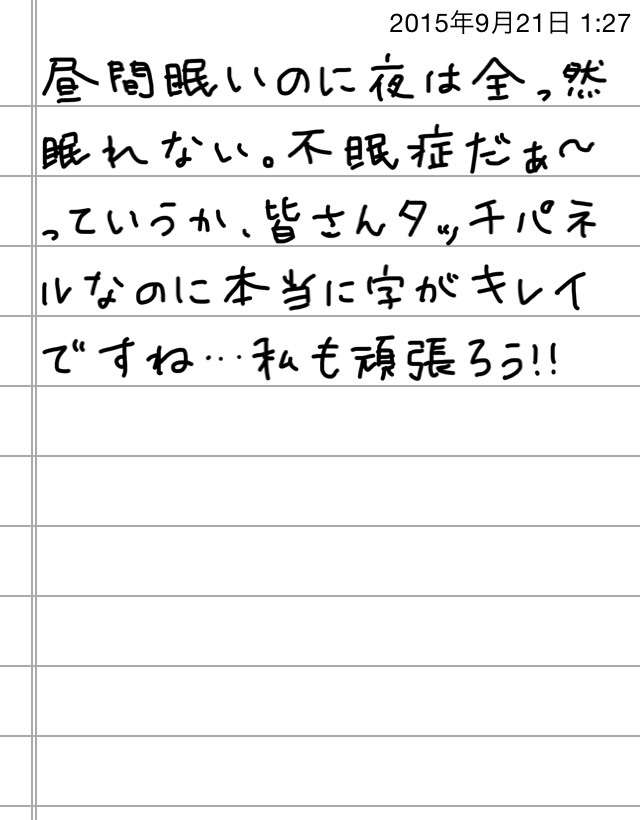 2015年9月21日 1:27
昼間眠いのに夜は全っ然
眠れない。不眠症だぁ〜
っていうか、皆さんタッチパネ
ルなのに本当に字がキレイ
ですね…私も頑張ろう!!